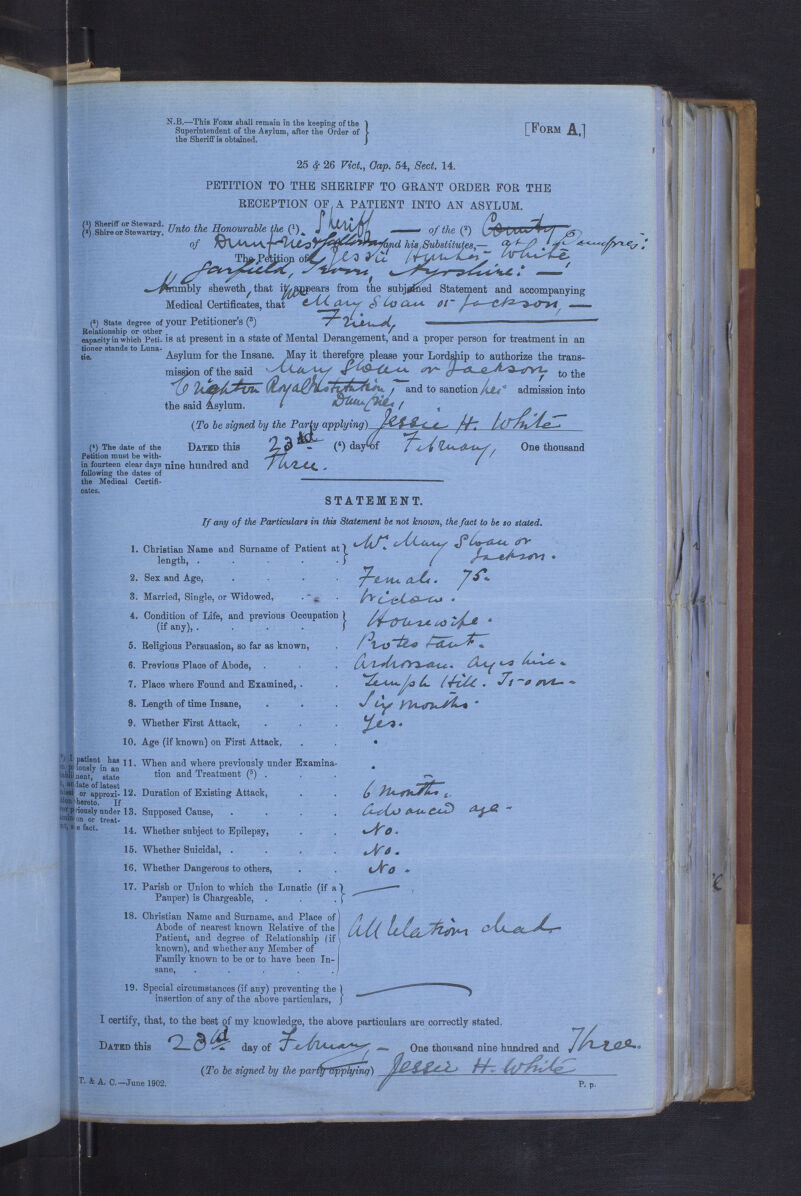 N.B.—This Form shall remain in the keeping of the
Superintendent of the Asylum, after the Order of
the Sheriff is obtained.
[Form A.]
25 & 26 Vict., Cap. 54, Sect. 14.
PETITION TO THE SHERIFF TO GRANT ORDER FOR THE
RECEPTION OF A PATIENT INTO AN ASYLUM.
(1) Sheriff or Steward.
(2) Shire or Stewartry.
Unto the Honourable the (1) Sheriff — of the (2) County
of Dumfries & Galloway and his Substitutes,— at Dumfries:
The Petition of Jessie Hunter White,
Garfield, Troon, Ayrshire: —
Humbly sheweth, that it appears from the subjoined Statement and accompanying
Medical Certificates, that Mrs Mary Sloan or Jackson, —
(3) State degree of
Relationship or other
capacity in which Peti-
tioner stands to Luna-
tic.
your Petitioner's (3) Friend,
is at present in a state of Mental Derangement, and a proper person for treatment in an
Asylum for the Insane. May it therefore please your Lordship to authorize the trans-
mission of the said Mary Sloan or Jackson, to the
Crighton Royal Institution, — and to sanction her admission into
the said Asylum. Dumfries,
(To be signed by the Party applying) Jessie H. White
(4) The date of the
Petition must be with-
in fourteen clear days
following the dates of
the Medical Certifi-
cates.
Dated this 23rd (4) day of February, One thousand
nine hundred and Three.
STATEMENT.
If any of the Particulars in this Statement be not known, the fact to be so stated.
1. Christian Name and Surname of Patient at length, . Mrs. Mary Sloan or
Jackson.
2. Sex and Age, Female. 75.
3. Married, Single, or Widowed, Widow.
4. Condition of Life, and previous Occupation (if any), . Housewife.
5. Religious Persuasion, so far as known, Protestant.
6. Previous Place of Abode, . Ardrossan. Ayrshire.
7. Place where Found and Examined, . Temple Hill. Troon.
8. Length of time Insane, Six months.
9. Whether First Attack, Yes.
10. Age (if known) on First Attack, .
11. When and where previously under Examina-
tion and Treatment (5) .
patient has
iously in an
ment, state
date of latest
or approxi-
hereto. If
riously under
on or treat-
e fact.
12. Duration of Existing Attack, 6 months.
13. Supposed Cause, . advanced age.
14. Whether subject to Epilepsy, No.
15. Whether Suicidal, . No.
16. Whether Dangerous to others, No.
17. Parish or Union to which the Lunatic (if a
Pauper) is Chargeable, . —
18. Christian Name and Surname, and Place of
Abode of nearest known Relative of the
Patient, and degree of Relationship (if
known), and whether any Member of
Family known to be or to have been In-
sane, All relations dead
19. Special circumstances (if any) preventing the
insertion of any of the above particulars, —
I certify, that, to the best of my knowledge, the above particulars are correctly stated.
Dated this 23rd day of February — One thousand nine hundred and Three.
(To be signed by the party applying) Jessie H. White
T. & A. C.—June 1902.
P. p.